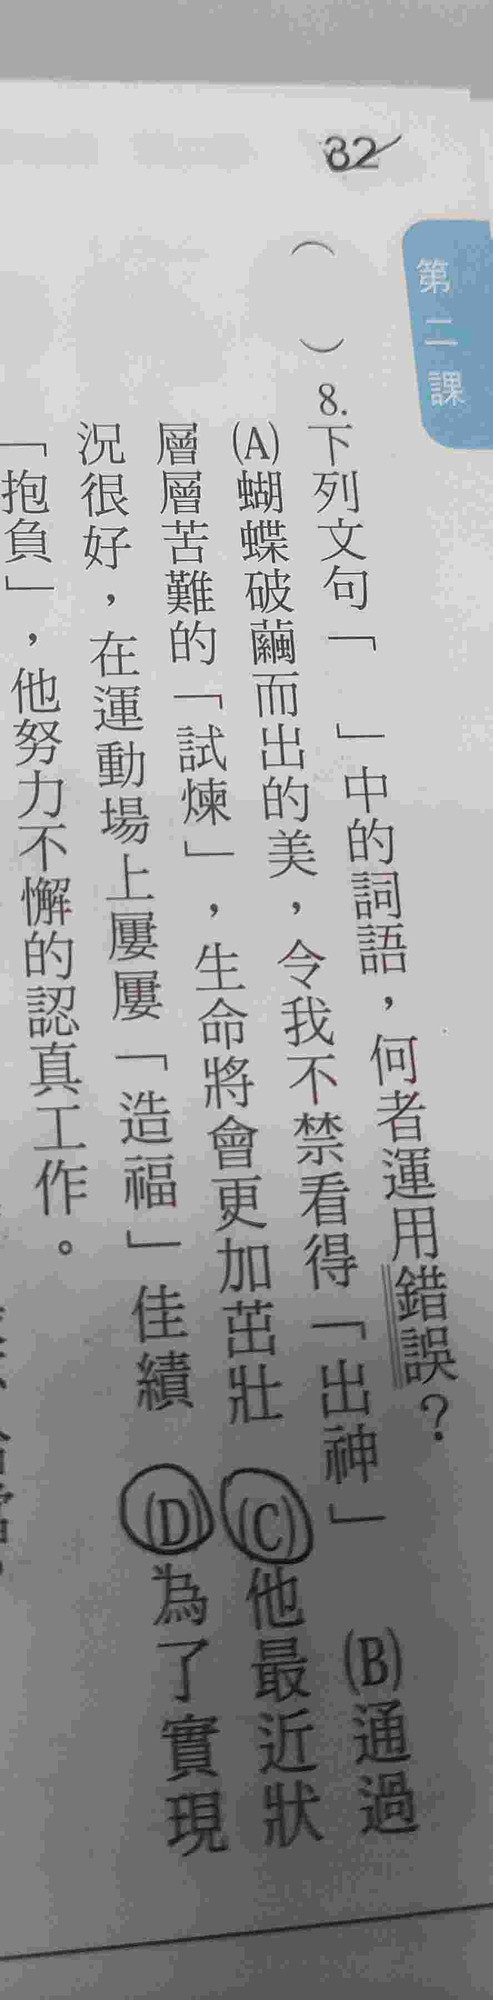 32
第二課
( ) 8.下列文句「 」中的詞語，何者運用錯誤？
(A)蝴蝶破繭而出的美，令我不禁看得「出神」 (B)通過
層層苦難的「試煉」，生命將會更加茁壯 (C)他最近狀
況很好，在運動場上屢屢「造福」佳績 (D)為了實現
「抱負」，他努力不懈的認真工作。